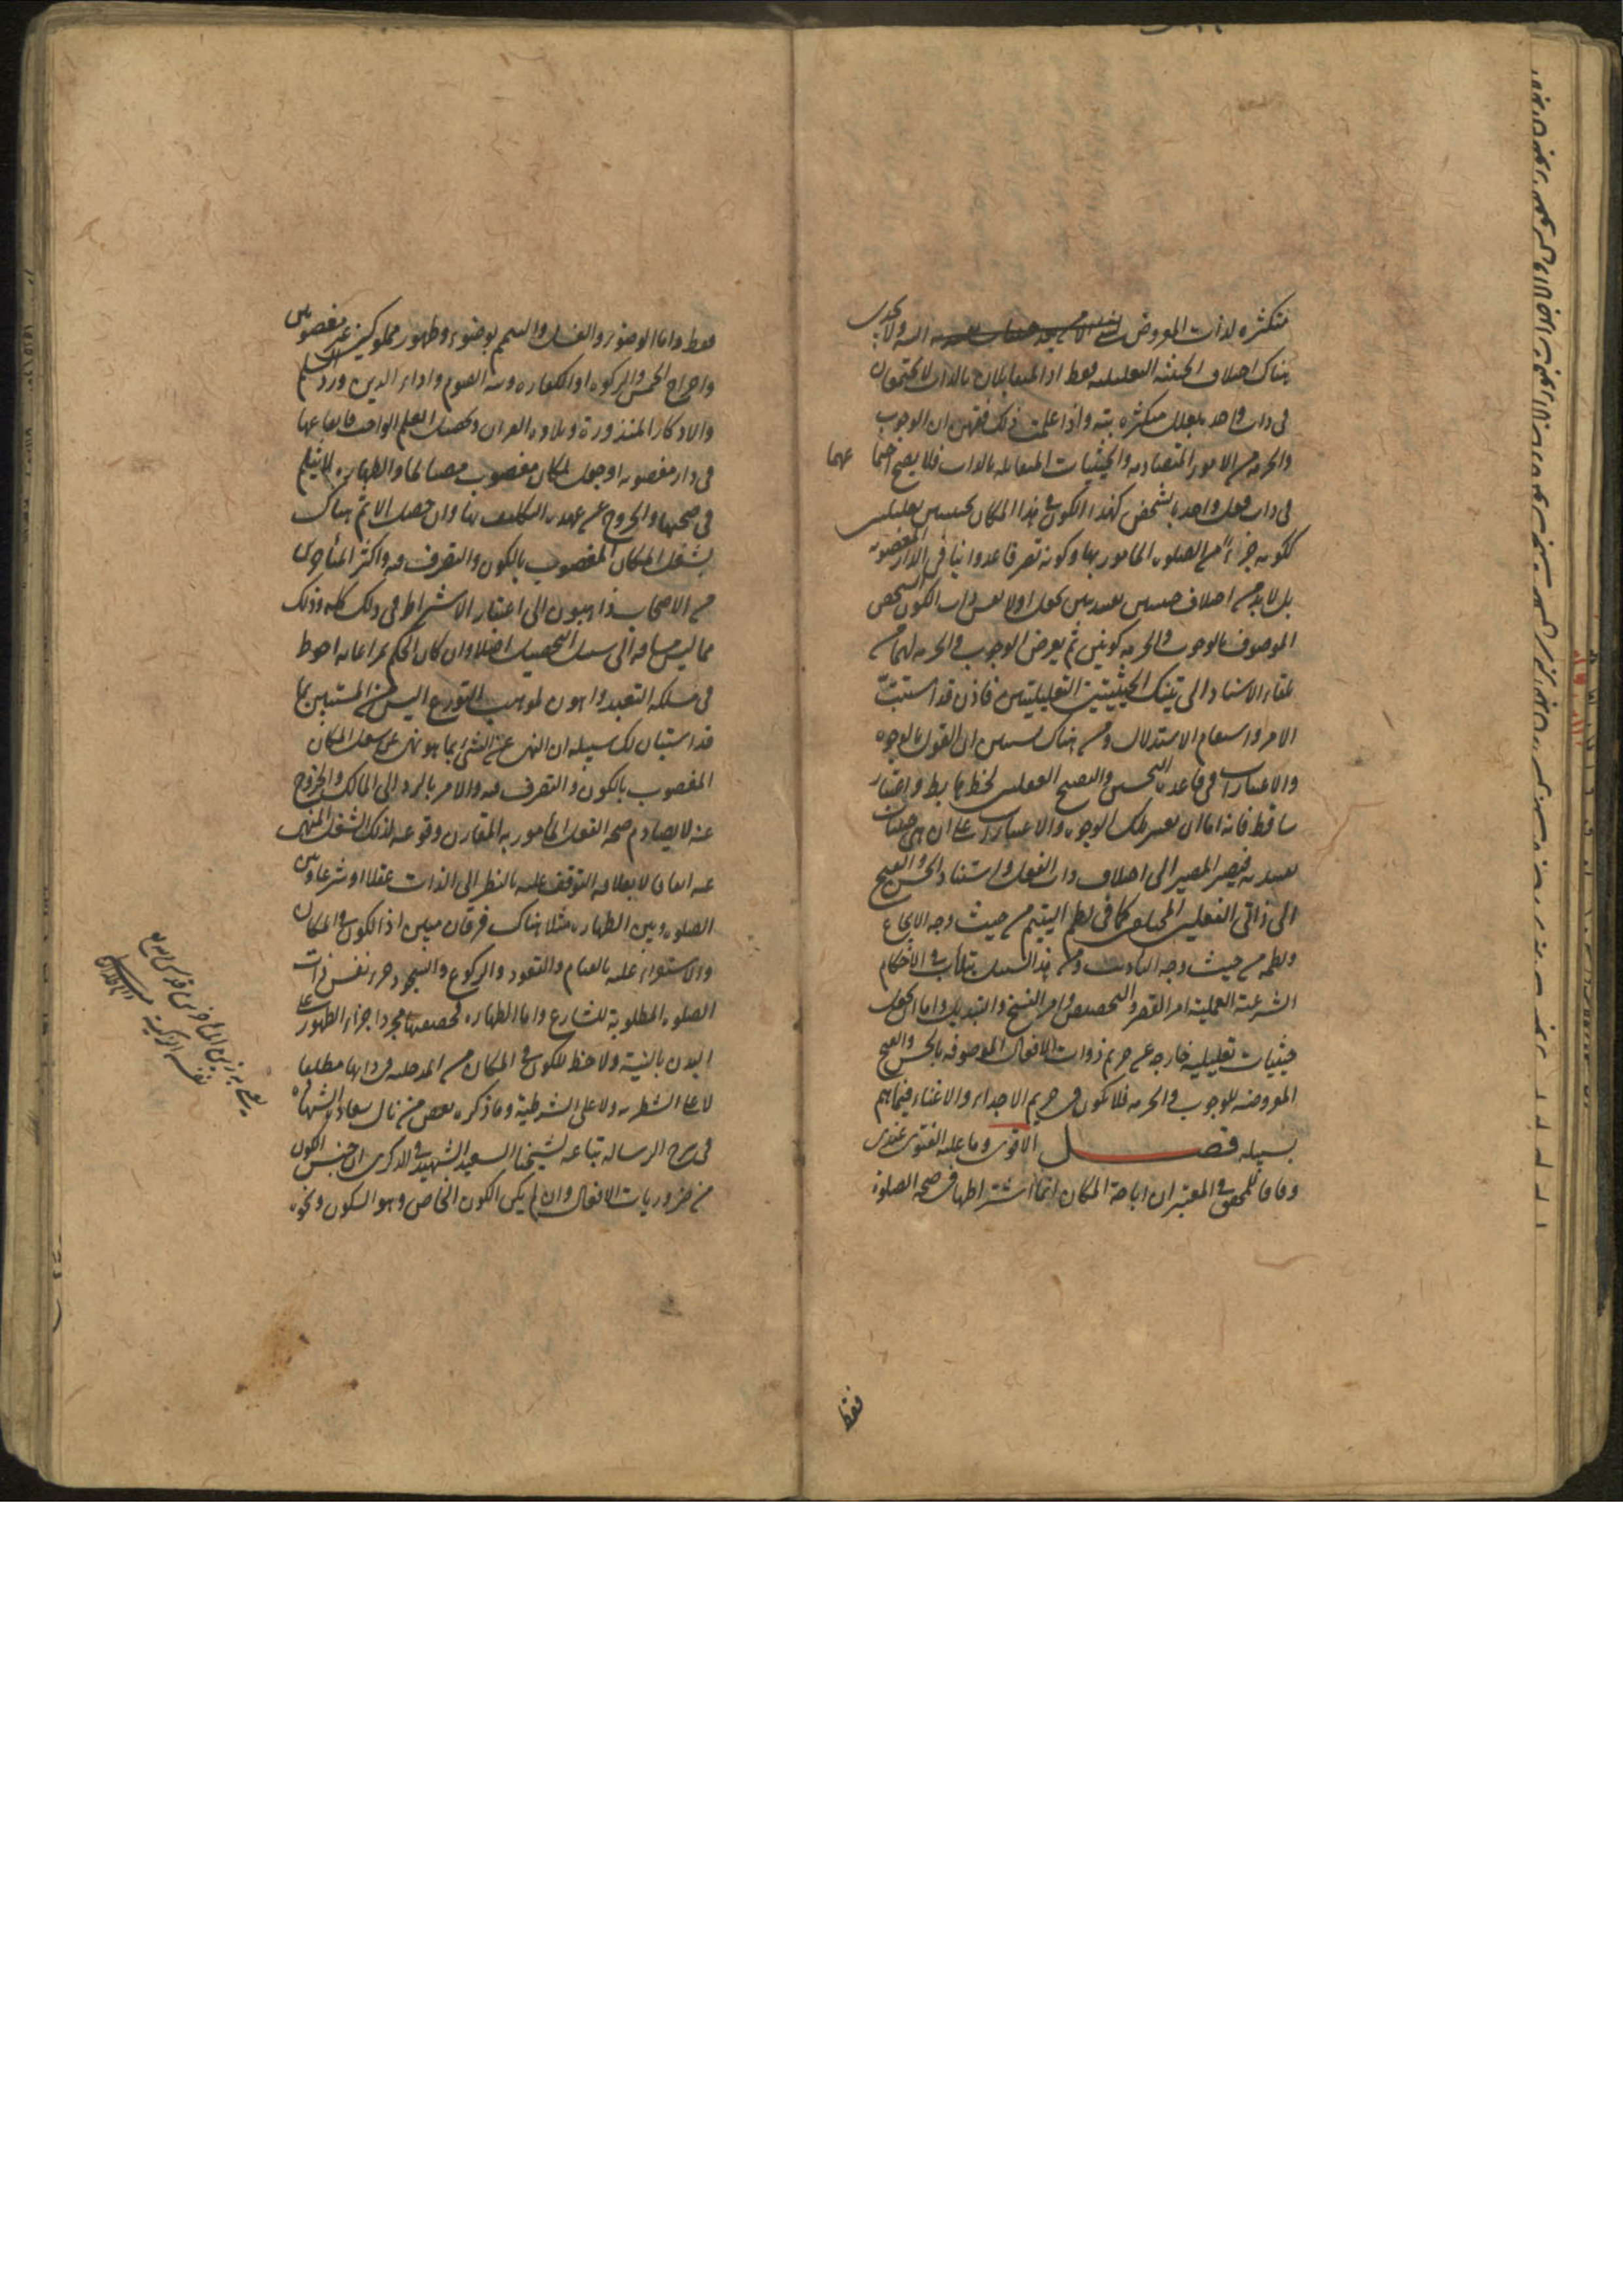 متكثره لذات المعروض البته ولا يجدى
هناك اختلاف الحيثيه التعليليه فقط اذ المتقابلان بالذات لا يجتمعان
فى ذات واحده بعلل متكثره بته واذا علمت ذلك فقهن ان الوجوب
والحرمه من الامور المتضاده والحيثيات المتقابله بالذات فلا يصح اجتماعهما
فى ذات فعل واحد بالشخص كهذا الكون فى هذا المكان بحيثيتين تعليليتين
ككونه جزءا من الصلوه المامور بها وكونه تصرفا عدوانيا فى الدار المغصوبه
بل لابد من اختلاف حيثيتين تقييديتين تجعل اولا نفس ذات الكون الشخصى
الموصوف بالوجوب والحرمه كونين ثم يعرض الوجوب والحرمه لهما من
تلقاء الاستناد الى تينك الحيثيتين التعليليتين فاذن قد استتب
الامر واستقام الاستدلال ومن هناك يستبين ان القول بالوجوه
والاعتبارات فى قاعدة التحسين والتقبيح العقليين لحظ هابط واعتبار
ساقط فانه اما ان يعتبر تلك الوجوه والاعتبارات على ان هى حيثيات
تقييديه فيصير المصير الى اختلاف ذات الفعل واستناد الحسن والقبح
الى ذاتى الفعلين المختلفين كما فى لطم اليتيم من حيث وجه الايجاع
ولطمه من حيث وجه التاديب ومن هذا السبيل يتلأب فى الاحكام
الشرعية العملية امر القصر والتخصيص وامر النسخ والتبديل واما ان تجعل
حيثيات تعليليه خارجه عن حريم ذوات الافعال الموصوفه بالحسن والقبح
المعروضه للوجوب والحرمه فلا تكون فى حريم الاجداء والاغناء فيما هم
بسبيله فصل الاقوى وما عليه الفتوى عندى
وفاقا للمحقق فى المعتبر ان اباحة المكان انما اشتراطها فى صحه الصلوة
فقط
فقط واما الوضوء والغسل والتيمم بوضوء وطهور مملوكين غير مغصوبين
واخراج الخمس والزكوه او الكفاره ونيه الصوم واداء الدين ورد السلام
والاذكار المنذورة وتلاوه القران وتحصيل العلم الواجب فايقاعها
فى دار مغصوبه او جعل مكان مغصوب مصبا لماء الطهاره لا يثلم
فى صحتها والخروج عن عهده التكليف بها وان حصل الاثم هناك
بشغل المكان المغصوب بالكون والتصرف فيه واكثر المتأخرين
من الاصحاب ذاهبون الى اعتبار الاشتراط فى ذلك كله وذلك
مما ليس مساقه الى سبيل التحصيل اصلا وان كان الحكم بمراعاته احوط
فى مسلكه التعبد واهون لمذهب التورع اليس من المستبين بما
قد استبان لك سبيله ان النهى عن الشئ بما هو نهى عن شغل المكان
المغصوب بالكون والتصرف فيه والامر بالرد الى المالك والخروج
عنه لا يصادم صحه الفعل المأمور به المقارن وقوعه لذلك الشغل المنهى
عنه اتفاقا لا بعلاقه التوقف عليه بالنظر الى الذات عقلا او شرعا وبين
الصلوه وبين الطهاره مثلا هناك فرقان مبين اذ الكون فى المكان
والاستواء عليه بالقيام والقعود والركوع والسجود جزء نفس ذات
الصلوه المطلوبة للشارع واما الطهاره فحقيقتها مجرد اجراء الطهور على
البدن بالنية ولا حظ للكون فى المكان من المدخليه فى ذاتها مطلقا
لا على الشطريه ولا على الشرطية وما ذكره بعض من نال سعادة الشهاده
فى شرح الرساله تباعه لشيخنا السعيد الشهيد فى الذكرى ان جنس الكون
من ضروريات الافعال وان لم يكن الكون الخاص وهو السكون ونحوه